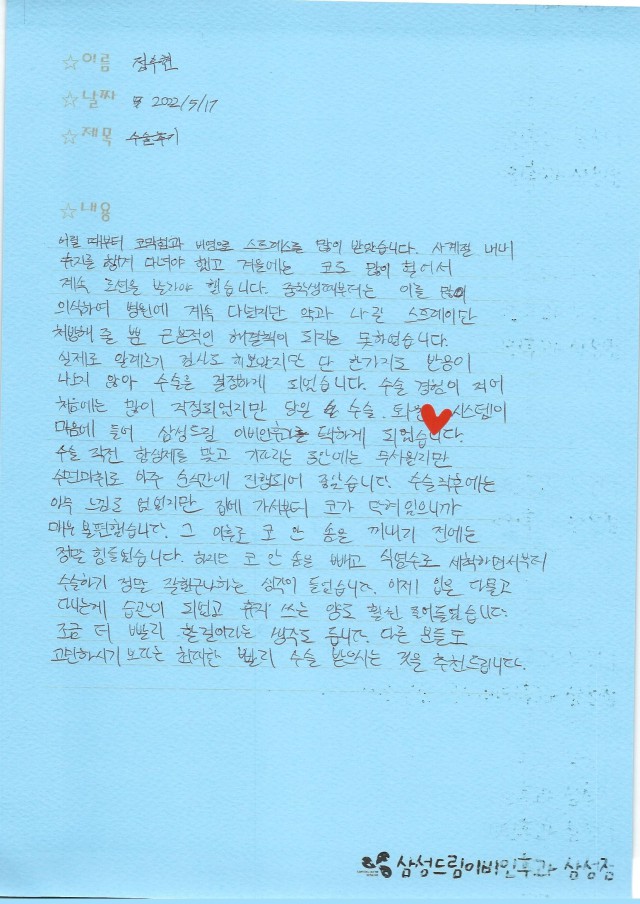 ☆이름 정우현
☆날짜 2022/5/17
☆제목 수술후기
☆내용
어릴 때부터 코막힘과 비염으로 스트레스를 많이 받았습니다. 사계절 내내
휴지를 챙겨 다녀야 했고 겨울에는 코도 많이 헐어서
계속 연고를 발라야 했습니다. 중학생때부터는 이를 많이
의식하여 병원에 계속 다녔지만 약과 나잘 스프레이만
처방해 줄 뿐 근본적인 해결책이 되지는 못하였습니다.
실제로 알레르기 검사도 해보았지만 단 한가지도 반응이
나오지 않아 수술을 결정하게 되었습니다. 수술 경험이 적어
처음에는 많이 걱정되었지만 당일 수술. 퇴원 시스템이
마음에 들어 삼성드림 이비인후과를 택하게 되었습니다.
수술 직전 항생제를 맞고 기다리는 동안에는 무서웠지만
수면마취로 아주 순식간에 진행되어 좋았습니다. 수술직후에는
아무 느낌도 없었지만 집에 가서부터 코가 막혀있으니까
매우 불편했습니다. 그 이후로 코 안 솜을 꺼내기 전에는
정말 힘들었습니다. 하지만 코 안 솜을 빼고 식염수로 세척하면서부터
수술하기 정말 잘한거 하는 생각이 들었습니다. 이제 입을 다물고
다니는게 습관이 되었고 휴지 쓰는 양도 훨씬 줄어들었습니다.
조금 더 빨리 할걸이라는 생각도 듭니다. 다른 분들도
고민하시기 보다는 최대한 빨리 수술 받으시는 것을 추천드립니다.
삼성드림이비인후과 삼성점